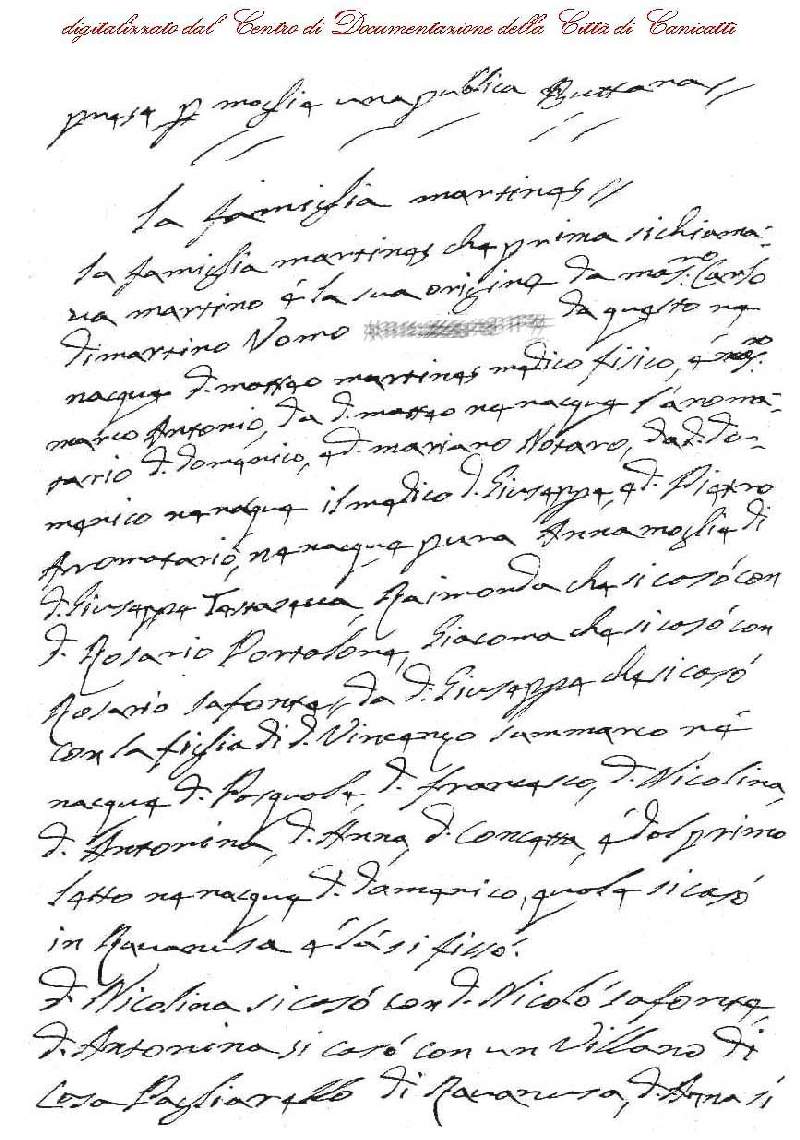 digitalizzato dal Centro di Documentazione della Città di Canicattì
prese p moglie una publica Buttana//
La famiglia martines//
la famiglia martines che prima si chiama-
va martino é la sua origine da m.ro Carlo
di martino Vomo da questo ne
nacque d. matteo martines medico fisico, é m.ro
marco Antonio, da d. matteo ne nacque l'aroma-
tario d. domenico, e d. mariano Notaro, da d. do-
menico ne nacque il medico d. Giuseppe, e d. Pietro
Arromatario, ne nacque pura Anna moglie di
d. Giuseppe Testasecca, Raimonda che si casò con
d. Rosario Portalone, Giacoma che si casò con
Rosario Lafonte, da d. Giuseppe che si casò
con la figlia di d. Vincenzo Sammarco né
nacque d. Pasquale, d. francesco, d. Nicolina,
d. Antonina, d. Anna, d. Concetta, é dal primo
letto ne nacque d. domenico, quale si casò
in Ravanusa e là si fissò.
d. Nicolina si casò con d. Nicolò Lafonte,
d. Antonina si casò con un Villano di
Casa Pagliarello di Ravanusa, d. Anna si